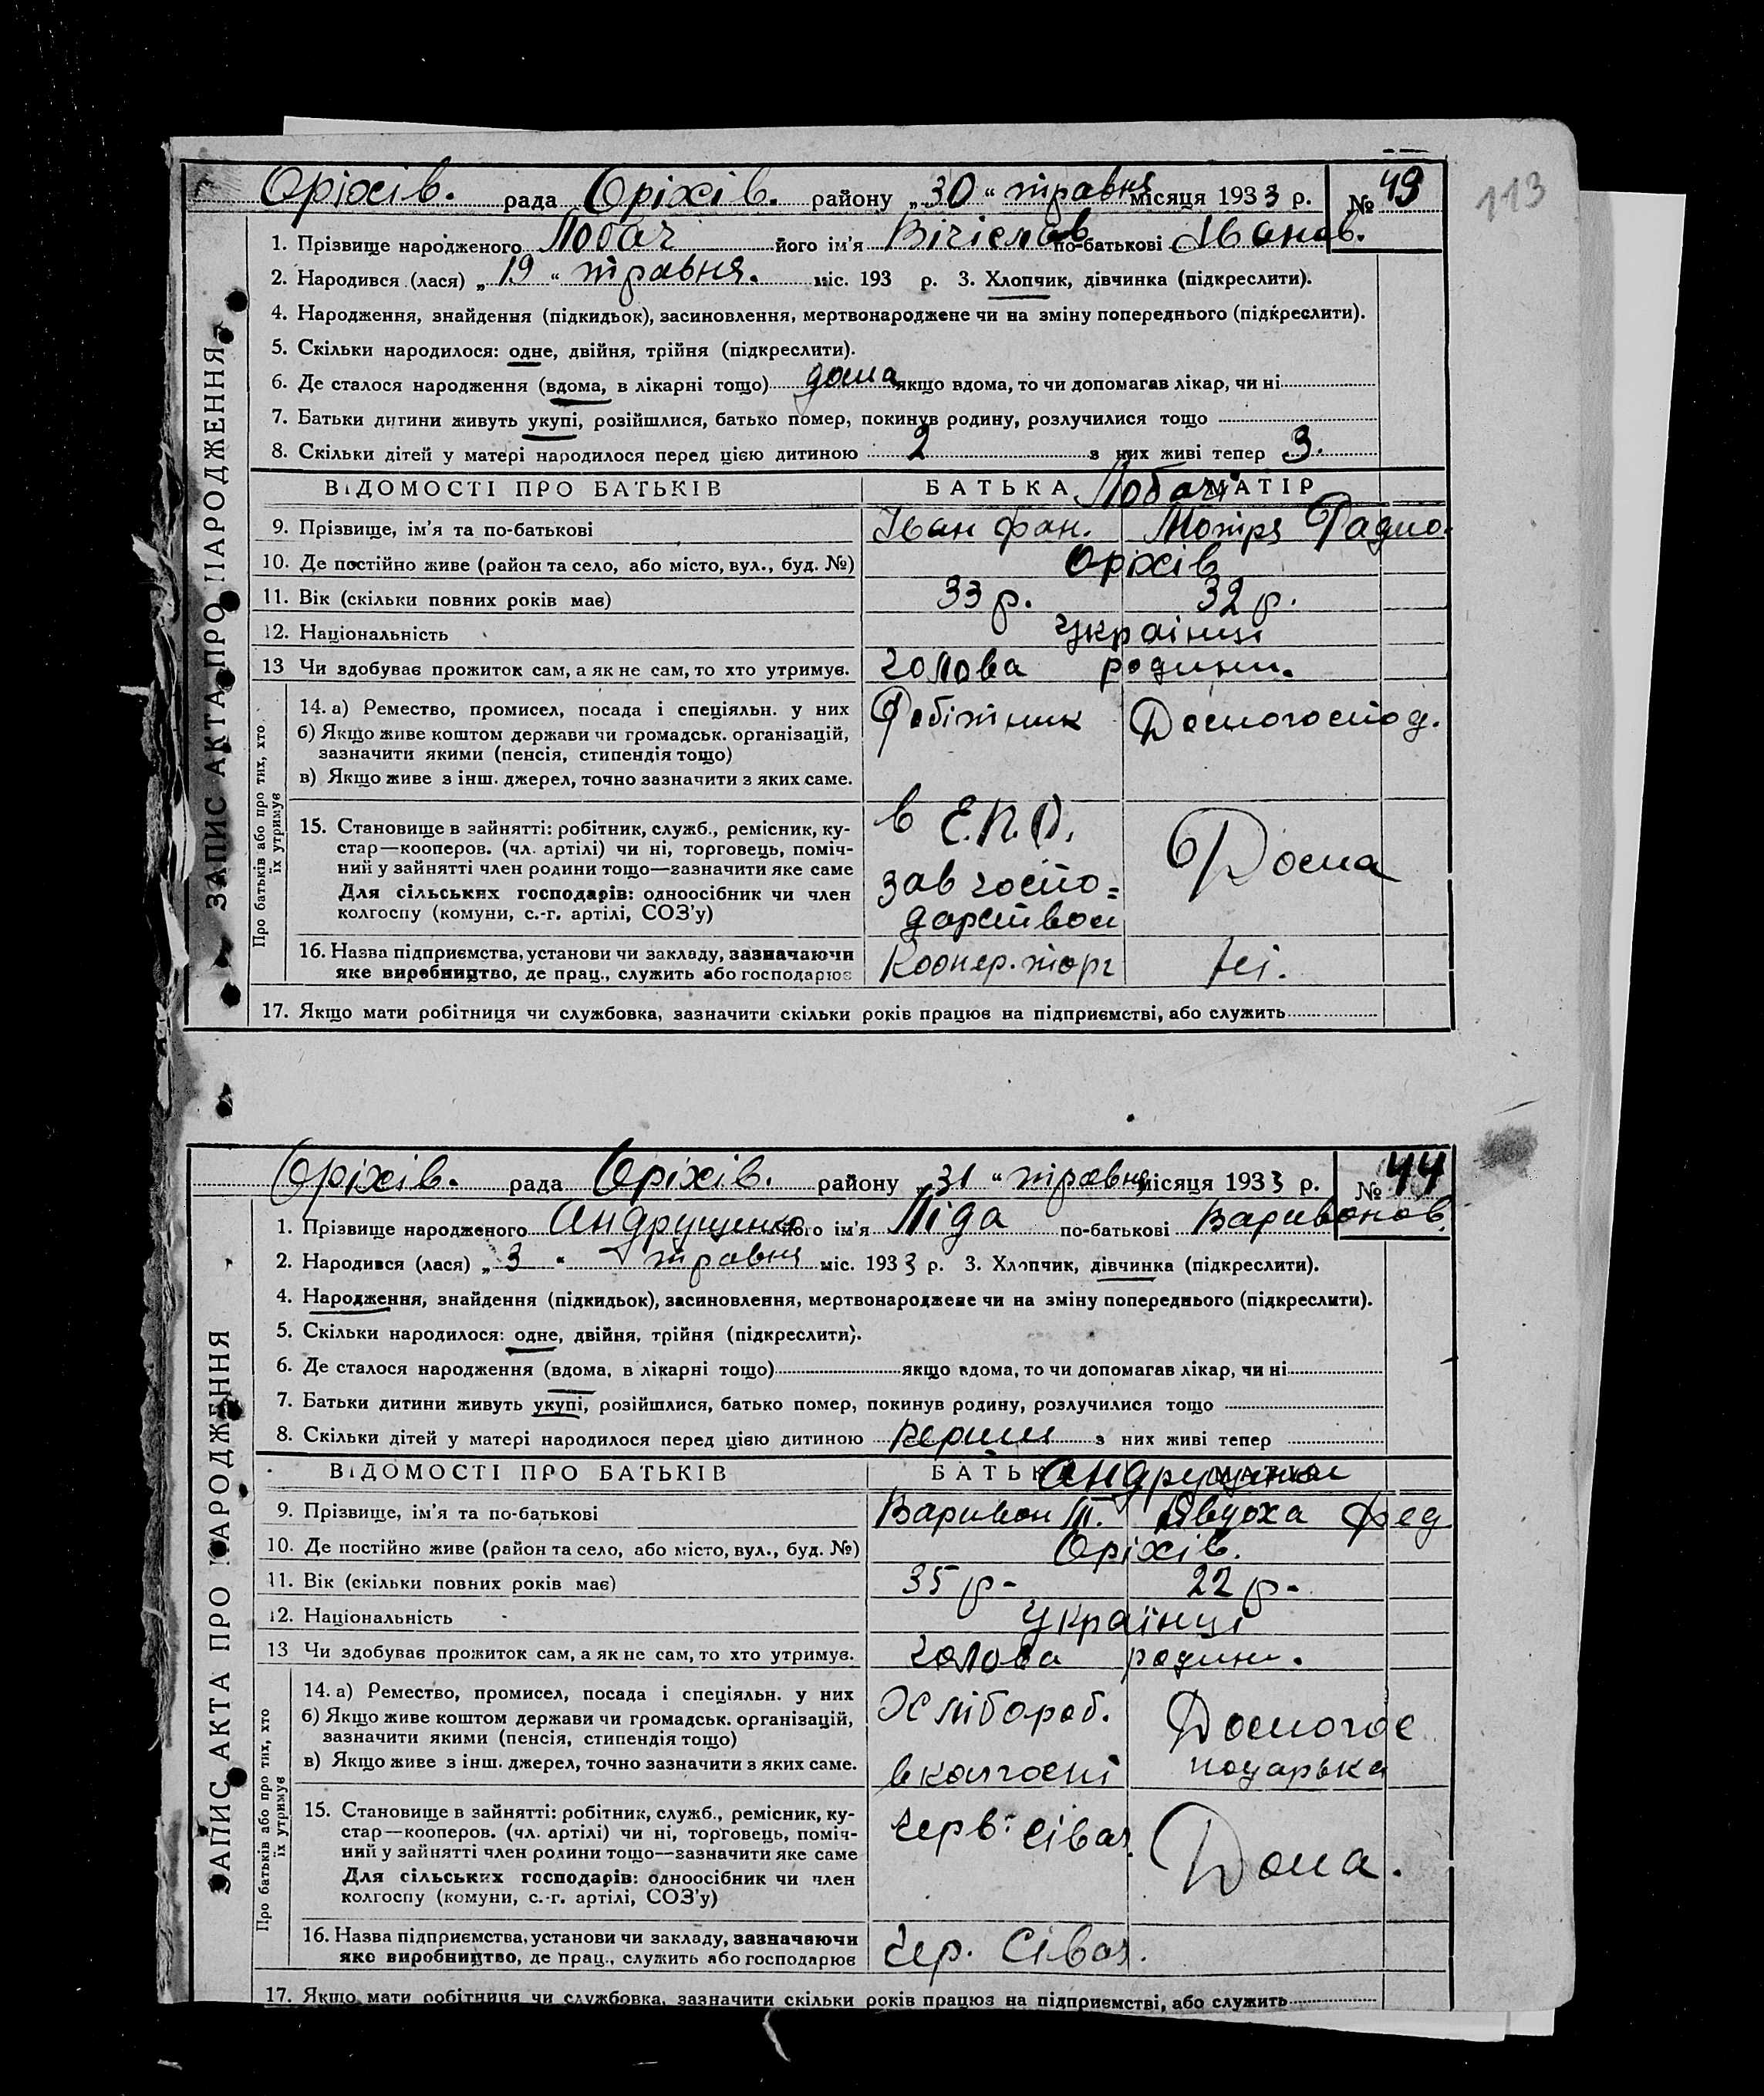 113
Оріхів. рада Оріхів. району „30" травня місяця 1933 р. № 43
1. Прізвище народженого Лобач його ім'я Вічіслав по-батькові Іванов.
2. Народився (лася) „19" травня. міс. 193 р. 3. Хлопчик, дівчинка (підкреслити).
4. Народження, знайдення (підкидьок), засиновлення, мертвонароджене чи на зміну попереднього (підкреслити).
5. Скільки народилося: одне, двійня, трійня (підкреслити).
6. Де сталося народження (вдома, в лікарні тощо) дома якщо вдома, то чи допомагав лікар, чи ні
7. Батьки дитини живуть укупі, розійшлися, батько помер, покинув родину, розлучилися тощо
8. Скільки дітей у матері народилося перед цією дитиною 2 з них живі тепер 3.
ВІДОМОСТІ ПРО БАТЬКІВ БАТЬКА Лобач МАТІР
9. Прізвище, ім'я та по-батькові Іван Фан. Мотря Радио.
10. Де постійно живе (район та село, або місто, вул., буд. №) Оріхів
11. Вік (скільки повних років має) 33 р. 32 р.
12. Національність Українці
13 Чи здобуває прожиток сам, а як не сам, то хто утримує. голова родини.
14. а) Ремество, промисел, посада і спеціяльн. у них Робітник Домогоспод.
б) Якщо живе коштом держави чи громадськ. організацій,
зазначити якими (пенсія, стипендія тощо)
в) Якщо живе з інш. джерел, точно зазначити з яких саме.
15. Становище в зайнятті: робітник, служб., ремісник, ку-
стар—кооперов. (чл. артілі) чи ні, торговець, поміч-
ний у зайнятті член родини тощо—зазначити яке саме
Для сільських господарів: одноосібник чи член
колгоспу (комуни, с.-г. артілі, СОЗ'у)
в Е.П.О.
зав госпо=
дарством
Дома
16. Назва підприємства, установи чи закладу, зазначаючи
яке виробництво, де прац., служить або господарює Коопер. торг Ні.
17. Якщо мати робітниця чи службовка, зазначити скільки років працює на підприємстві, або служить
ЗАПИС АКТА ПРО НАРОДЖЕННЯ
Про батьків або про тих, хто
їх утримує
Оріхів. рада Оріхів. району „31" травня місяця 1933 р. № 44
1. Прізвище народженого Андрущенко його ім'я Ліда по-батькові Варивонов.
2. Народився (лася) „3" травня міс. 1933 р. 3. Хлопчик, дівчинка (підкреслити).
4. Народження, знайдення (підкидьок), засиновлення, мертвонароджене чи на зміну попереднього (підкреслити).
5. Скільки народилося: одне, двійня, трійня (підкреслити).
6. Де сталося народження (вдома, в лікарні тощо) якщо вдома, то чи допомагав лікар, чи ні
7. Батьки дитини живуть укупі, розійшлися, батько помер, покинув родину, розлучилися тощо
8. Скільки дітей у матері народилося перед цією дитиною перши з них живі тепер
ВІДОМОСТІ ПРО БАТЬКІВ БАТЬКА Андрущенки МАТІР
9. Прізвище, ім'я та по-батькові Варивон Т. Явдоха Фед
10. Де постійно живе (район та село, або місто, вул., буд. №) Оріхів.
11. Вік (скільки повних років має) 35 р- 22 р-
12. Національність Українці
13 Чи здобуває прожиток сам, а як не сам, то хто утримує. голова родини.
14. а) Ремество, промисел, посада і спеціяльн. у них
б) Якщо живе коштом держави чи громадськ. організацій,
зазначити якими (пенсія, стипендія тощо)
в) Якщо живе з інш. джерел, точно зазначити з яких саме.
Хлібороб.
в колгоспі
Домогос
подарька
15. Становище в зайнятті: робітник, служб., ремісник, ку-
стар—кооперов. (чл. артілі) чи ні, торговець, поміч-
ний у зайнятті член родини тощо—зазначити яке саме
Для сільських господарів: одноосібник чи член
колгоспу (комуни, с.-г. артілі, СОЗ'у)
Черв: Сівач.
Дома.
16. Назва підприємства, установи чи закладу, зазначаючи
яке виробництво, де прац., служить або господарює Чер. Сівач.
17. Якщо мати робітниця чи службовка, зазначити скільки років працює на підприємстві, або служить
ЗАПИС АКТА ПРО НАРОДЖЕННЯ
Про батьків або про тих, хто
їх утримує